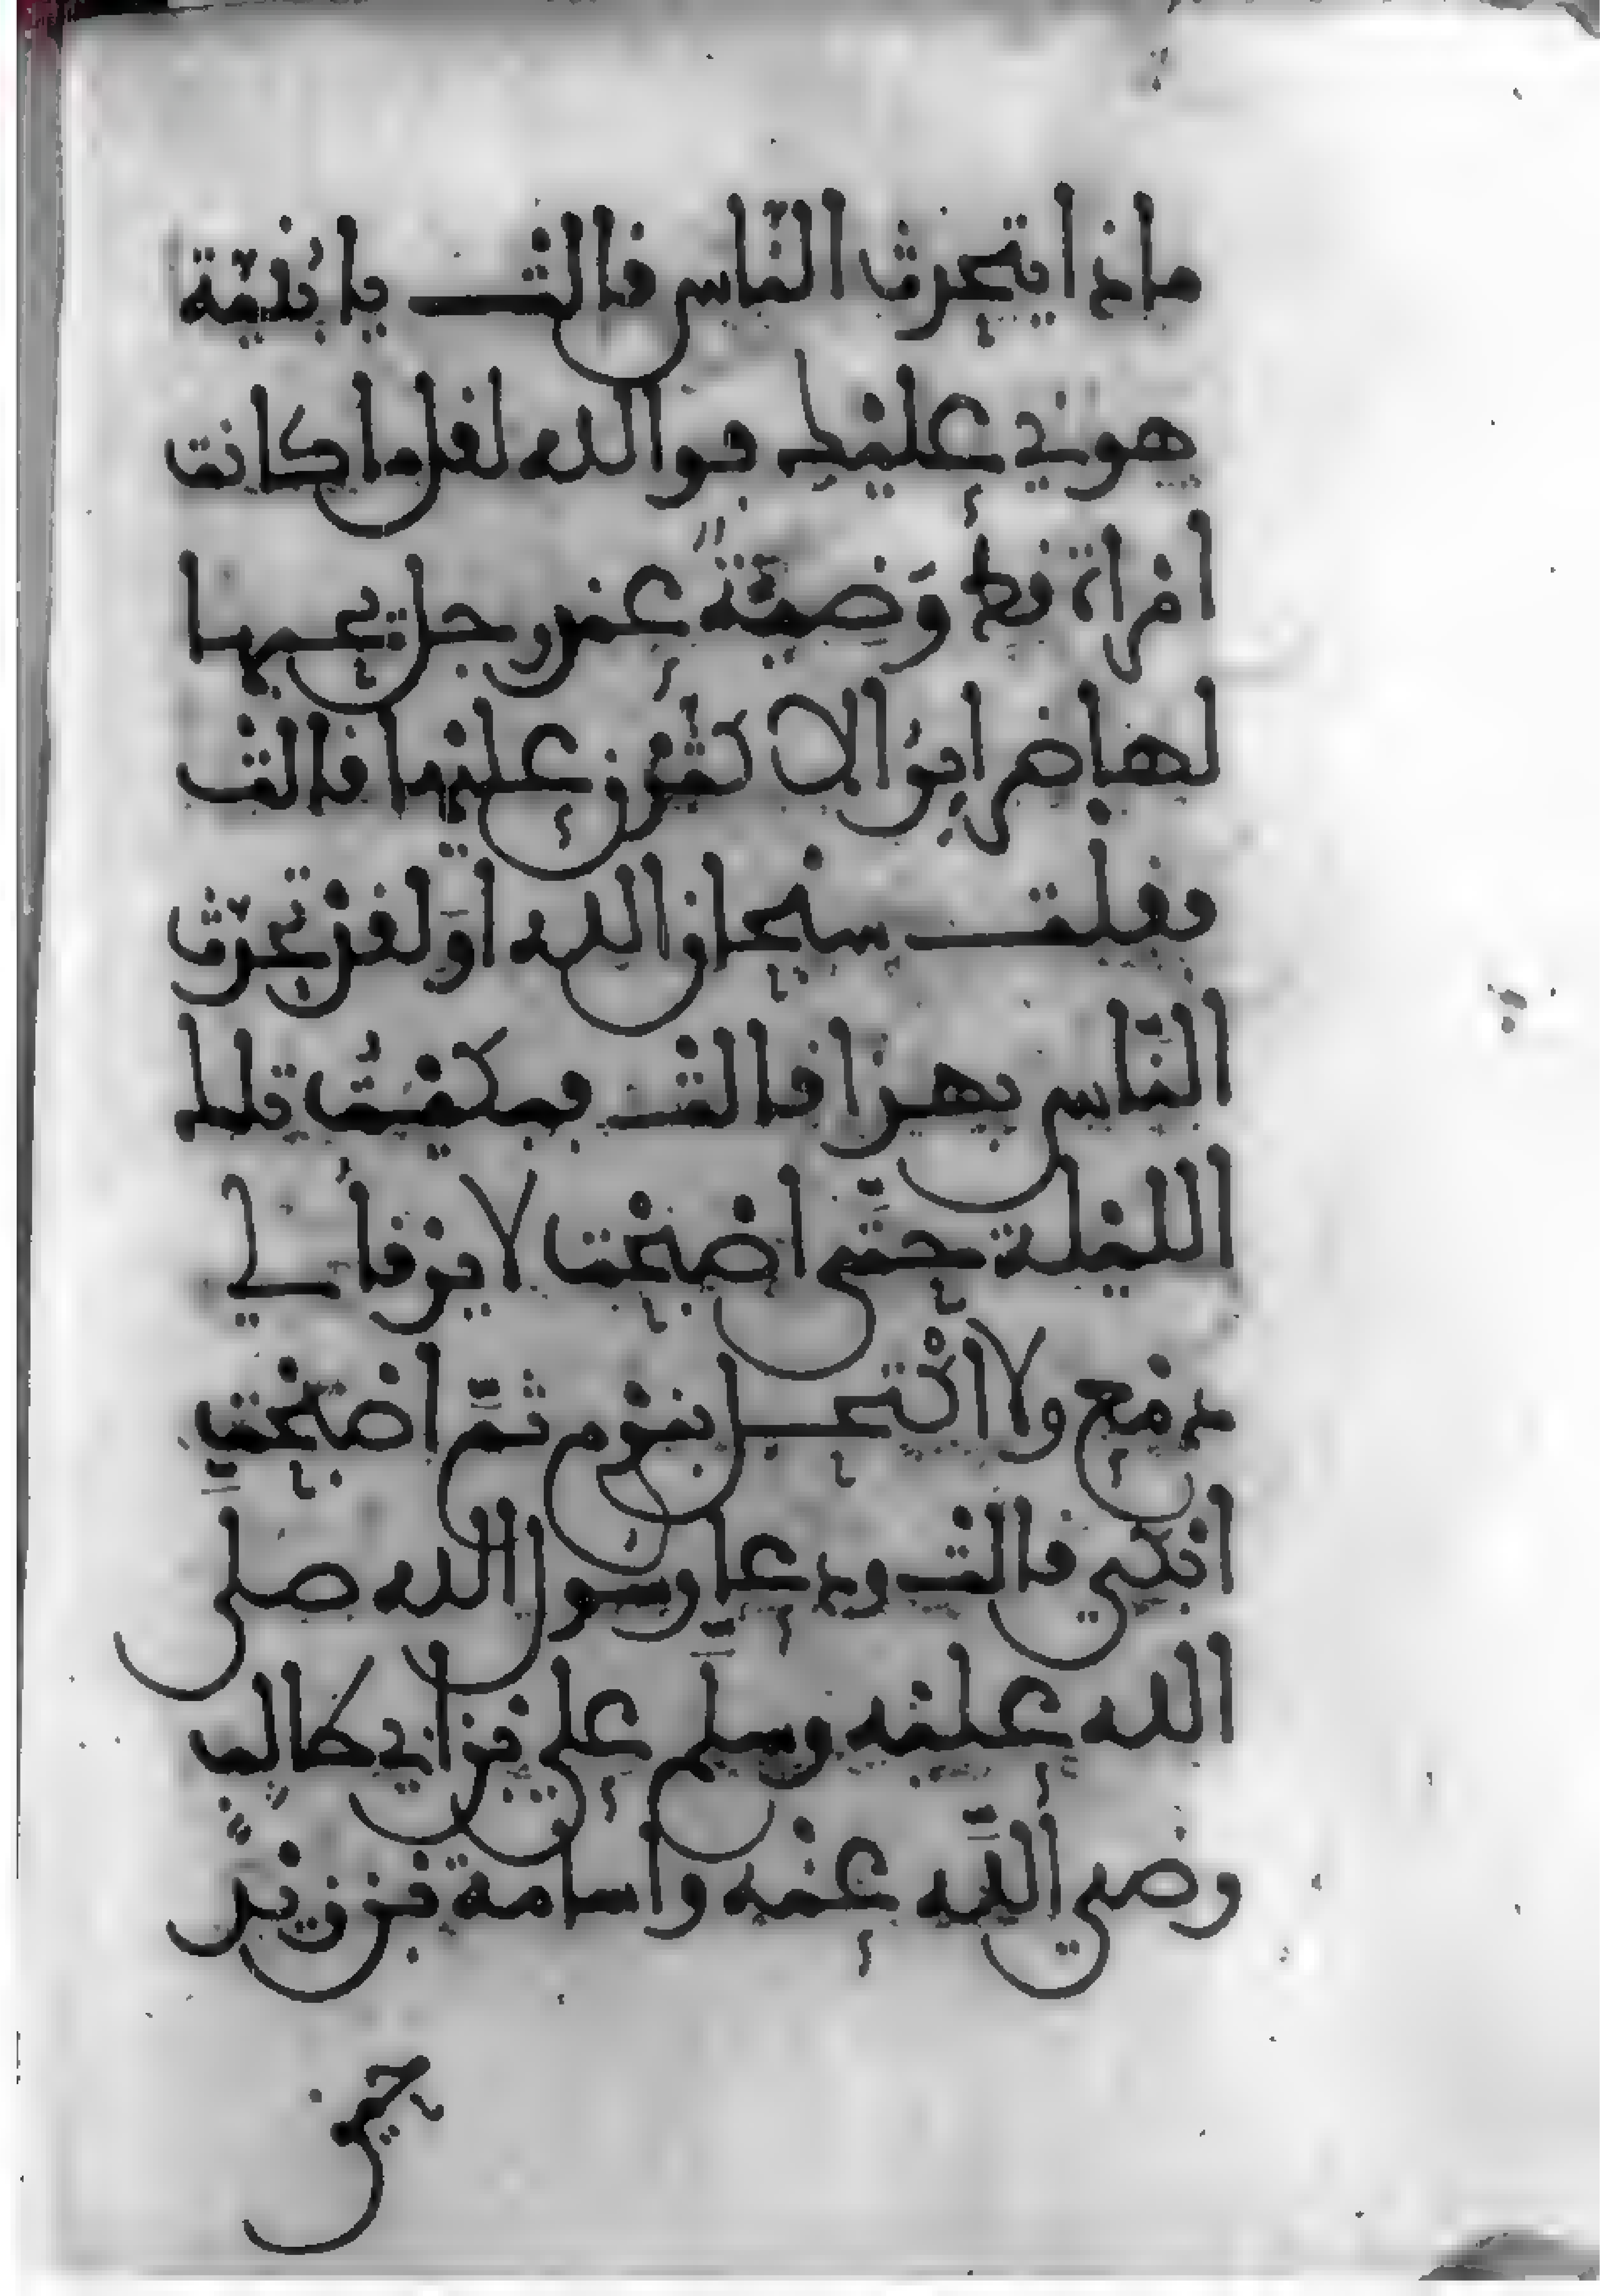 ماذا يتحدث الناس قالت يا بُنَيَّة
هوني عليك فوالله لقل ما كانت
امراة قط وَضِيئَةً عند رجل يحبها
لها ضراير الا كثّرن عليها قالت
فقلت سبحان الله اوَلقد تحدّث
الناس بهذا قالت فبكيْتُ تلك
الليلة حتّى اصبحْت لا يرقأ لي
دمع ولا اكتحل بنوم ثمّ اصبحت
ابكي قالت ودعا رسول الله صلى
الله عليه وسلّم علي بن ابي طالب
رضي اللّه عنه وأسامة بن زيد
حين